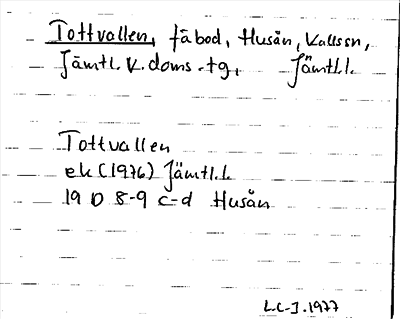 Tottvallen, fäbod, Huså​n, Kallssn,
Jämtl. v. doms.-tg, Jämtl.l.
Tottvallen
ek (1976) Jämtl.l.
19 D 8-9 c-d Husån
L.C-J. 1977